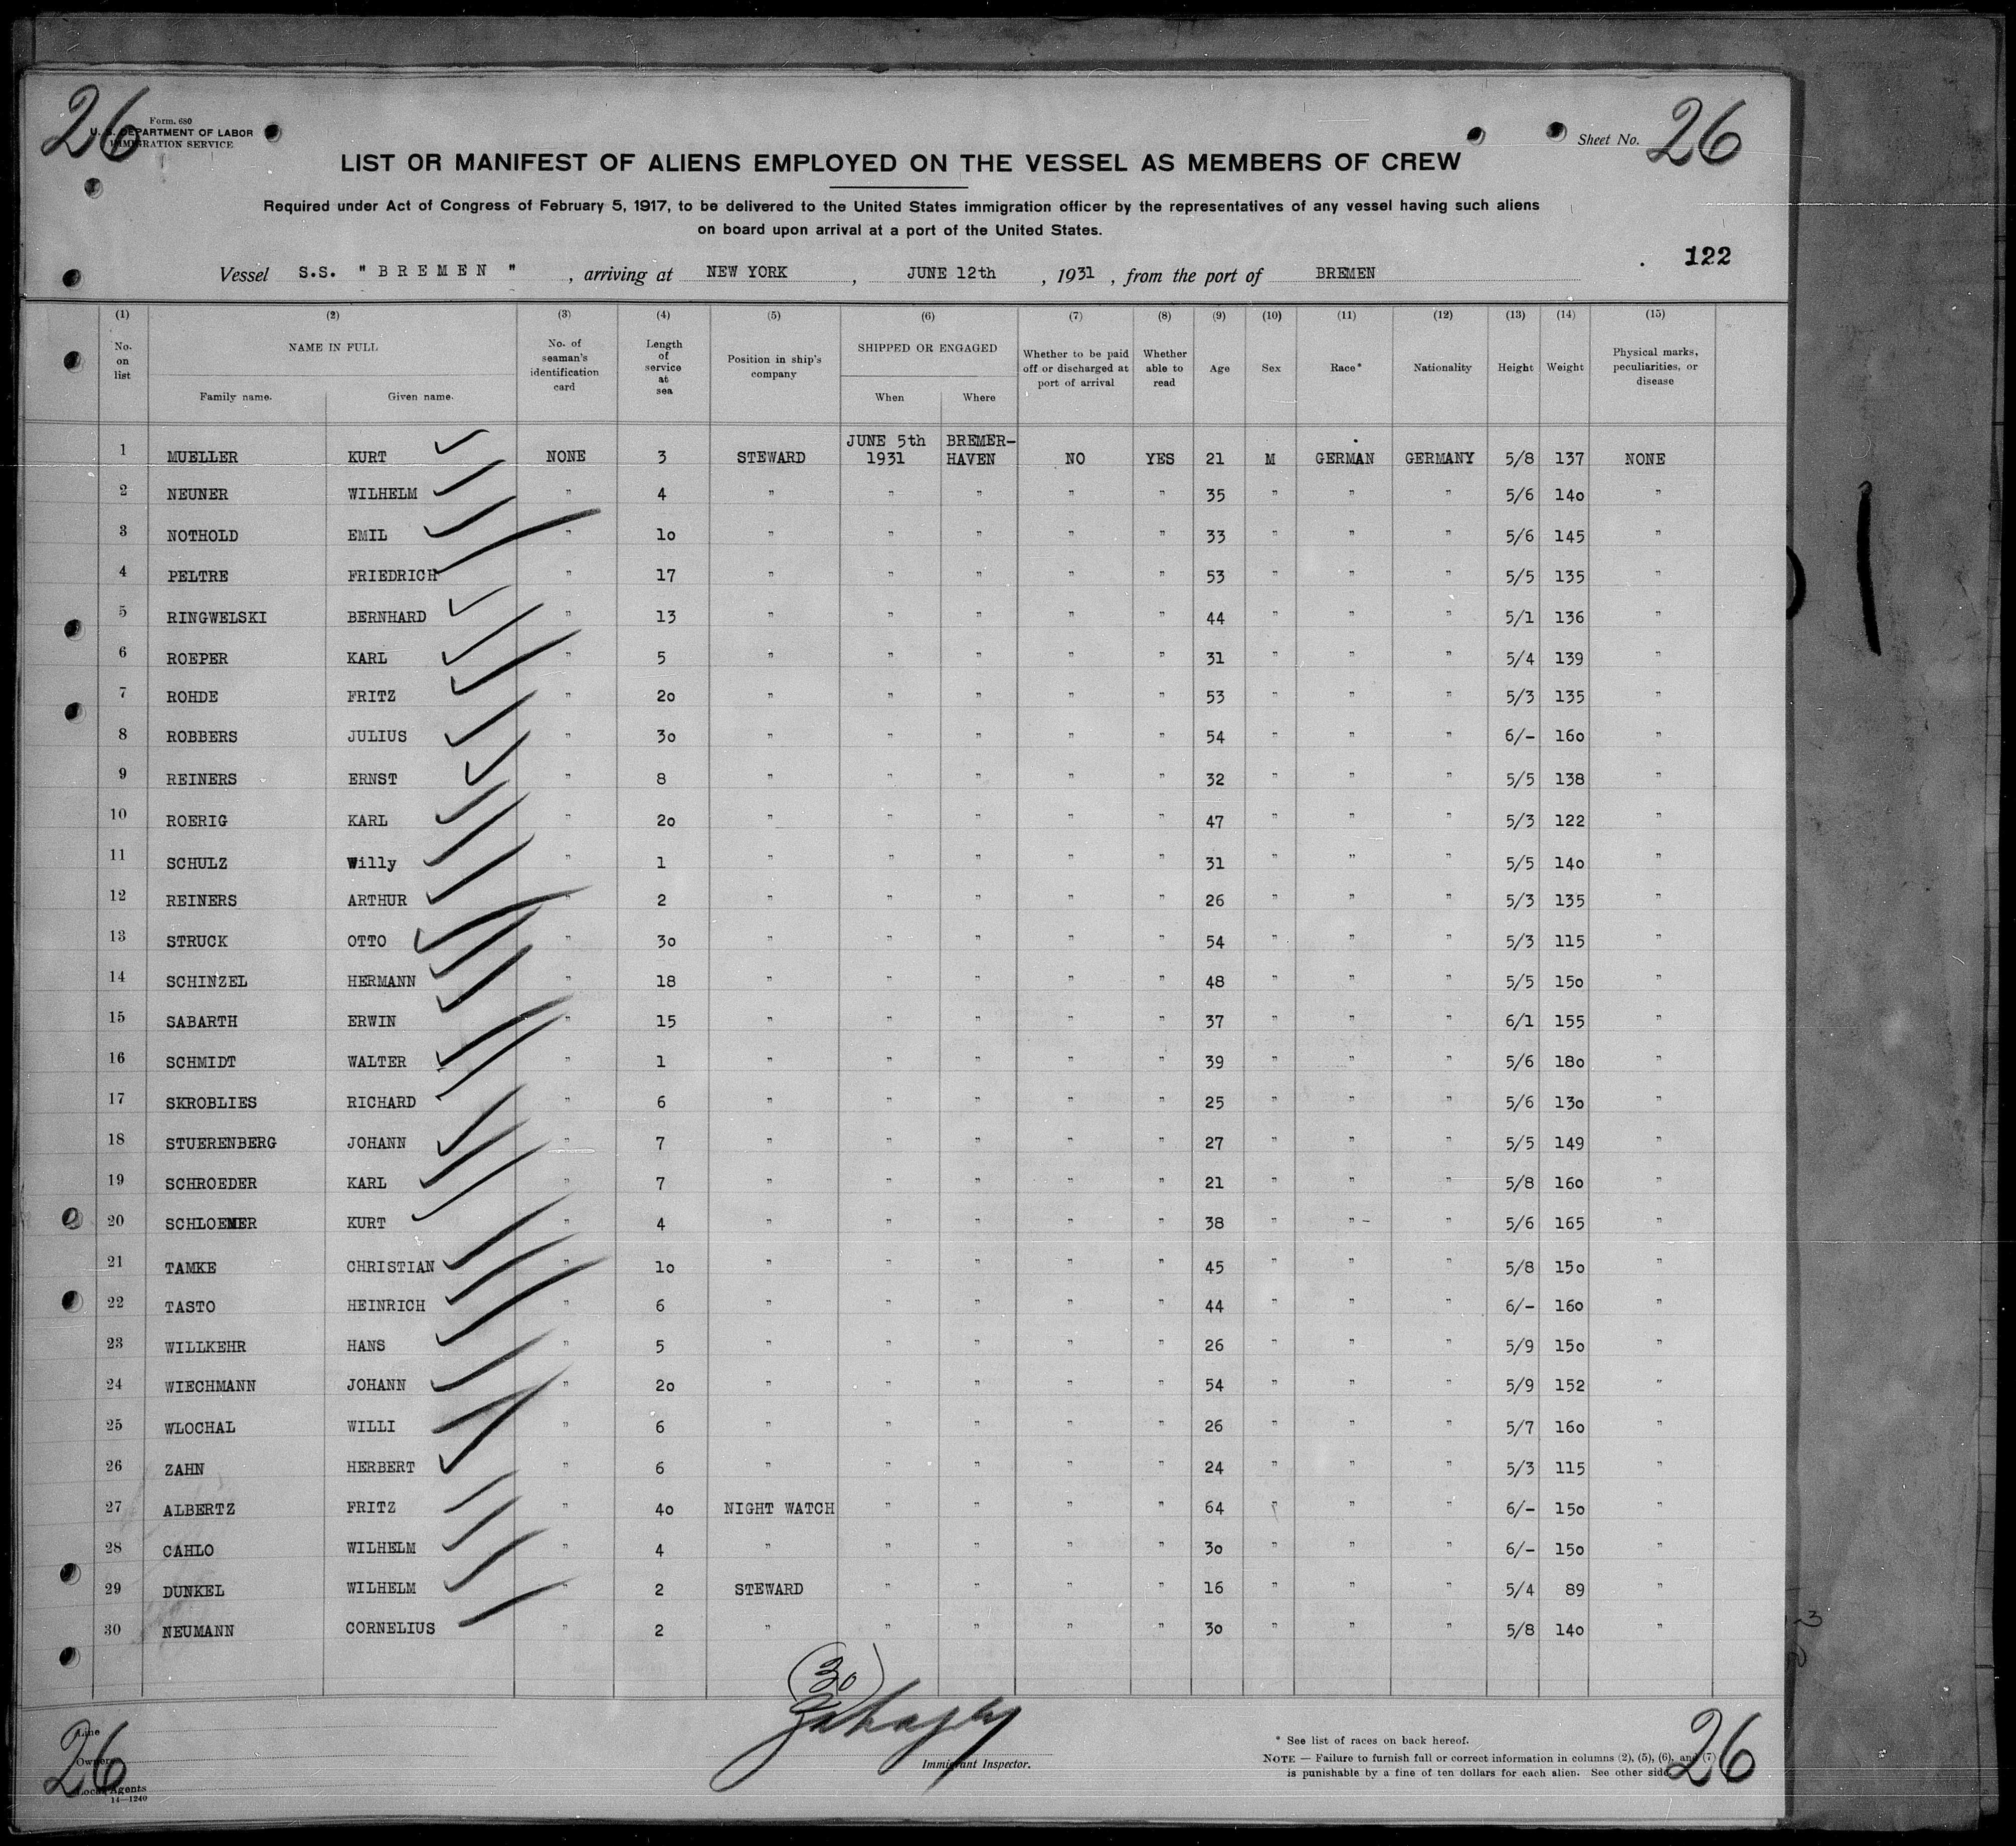 26
Form. 680
U. S. DEPARTMENT OF LABOR
IMMIGRATION SERVICE
Sheet No. 26
LIST OR MANIFEST OF ALIENS EMPLOYED ON THE VESSEL AS MEMBERS OF CREW
Required under Act of Congress of February 5, 1917, to be delivered to the United States immigration officer by the representatives of any vessel having such aliens
on board upon arrival at a port of the United States.
122
Vessel S.S. " B R E M E N " , arriving at NEW YORK , JUNE 12th , 1931 , from the port of BREMEN
(1) (2) (3) (4) (5) (6) (7) (8) (9) (10) (11) (12) (13) (14) (15)
No. on list NAME IN FULL Family name. Given name. No. of seaman's identification card Length of service at sea Position in ship's company SHIPPED OR ENGAGED When Where Whether to be paid off or discharged at port of arrival Whether able to read Age Sex Race* Nationality Height Weight Physical marks, peculiarities, or disease
JUNE 5th BREMER-
1 MUELLER KURT NONE 3 STEWARD 1931 HAVEN NO YES 21 M GERMAN GERMANY 5/8 137 NONE
2 NEUNER WILHELM " 4 " " " " " 35 " " " 5/6 140 "
3 NOTHOLD EMIL " 10 " " " " " 33 " " " 5/6 145 "
4 PELTRE FRIEDRICH " 17 " " " " " 53 " " " 5/5 135 "
5 RINGWELSKI BERNHARD 13 " " " " " 44 " " " 5/1 136 "
6 ROEPER KARL " 5 " " " " " 31 " " " 5/4 139 "
7 ROHDE FRITZ " 20 " " " " " 53 " " " 5/3 135 "
8 ROBBERS JULIUS " 30 " " " " " 54 " " " 6/- 160 "
9 REINERS ERNST " 8 " " " " " 32 " " " 5/5 138 "
10 ROERIG KARL " 20 " " " " " 47 " " " 5/3 122 "
11 SCHULZ Willy " 1 " " " " " 31 " " " 5/5 140 "
12 REINERS ARTHUR " 2 " " " " " 26 " " " 5/3 135 "
13 STRUCK OTTO " 30 " " " " " 54 " " " 5/3 115 "
14 SCHINZEL HERMANN " 18 " " " " " 48 " " " 5/5 150 "
15 SABARTH ERWIN " 15 " " " " " 37 " " " 6/1 155 "
16 SCHMIDT WALTER " 1 " " " " " 39 " " " 5/6 180 "
17 SKROBLIES RICHARD " 6 " " " " " 25 " " " 5/6 130 "
18 STUERENBERG JOHANN " 7 " " " " " 27 " " " 5/5 149 "
19 SCHROEDER KARL " 7 " " " " " 21 " " " 5/8 160 "
20 SCHLOEMER KURT " 4 " " " " " 38 " " " 5/6 165 "
21 TAMKE CHRISTIAN " 10 " " " " " 45 " " " 5/8 150 "
22 TASTO HEINRICH " 6 " " " " " 44 " " " 6/- 160 "
23 WILLKEHR HANS " 5 " " " " " 26 " " " 5/9 150 "
24 WIECHMANN JOHANN " 20 " " " " " 54 " " " 5/9 152 "
25 WLOCHAL WILLI " 6 " " " " " 26 " " " 5/7 160 "
26 ZAHN HERBERT " 6 " " " " " 24 " " " 5/3 115 "
27 ALBERTZ FRITZ " 40 NIGHT WATCH " " " " 64 " " " 6/- 150 "
28 CAHLO WILHELM " 4 " " " " " 30 " " " 6/- 150 "
29 DUNKEL WILHELM " 2 STEWARD " " " " 16 " " " 5/4 89 "
30 NEUMANN CORNELIUS " 2 " " " " " 30 " " " 5/8 140 "
(30)
Immigrant Inspector.
26
Line
Owners
Local Agents
14—1240
* See list of races on back hereof.
NOTE — Failure to furnish full or correct information in columns (2), (5), (6), and (7)
is punishable by a fine of ten dollars for each alien. See other side.
26